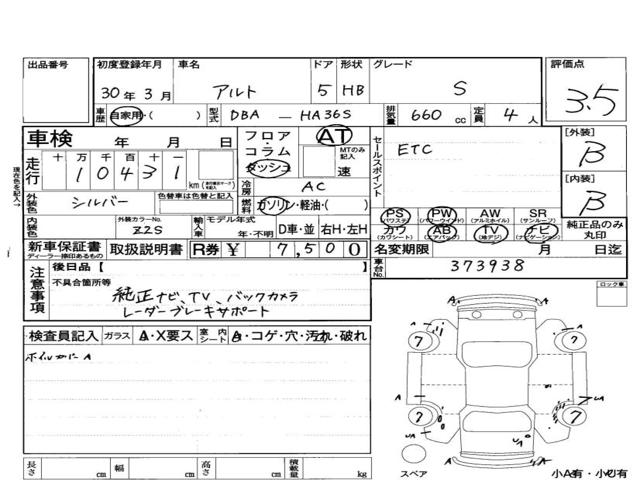 出品番号 初度登録年月 車名 ドア 形状 グレード 評価点
30年3月 アルト 5 HB S 3.5
車歴 自家用・( ) 型式 DBA — HA36S 排気量 660 cc 定員 4人
車検 年 月 日 フロア・コラム ダッシュ AT MTのみ記入 速 セールスポイント ETC [外装] B
走行 十万千百十一 10431 km
[内装] B
現在色を記入→ 外装色 シルバー 色替車は色替と記入 冷房 AC
燃料 ガソリン・軽油・( )
PS (パワステ) PW (パワーウインド) AW (アルミホイル) SR (サンルーフ) 純正品のみ丸印
内装色 外装カラーNo. Z2S 輸入車 モデル年式 年・不明 D車・並 右H・左H カワ (カワシート) AB (エアバック) TV (地デジ) ナビ (ナビゲーション)
新車保証書 ディーラー捺印あるもの 取扱説明書 R券 ¥ 7,500 名変期限 月 日迄
注意事項 後日品【 】 車台No. 373938
不具合箇所等 ロック車
純正ナビ、TV、バックカメラ
レーダーブレーキサポート
検査員記入 ガラス A・X要ス 室内シート A・コゲ・穴・汚れ・破れ
ホイルカバー A
A A
7 7
A A UA
7 7
UA A
A
長さ cm 幅 cm 高さ cm 積載量 kg スペア 小A有・小U有